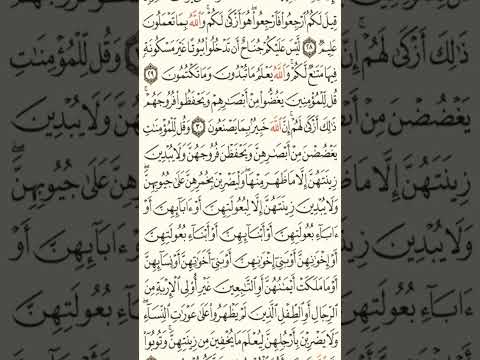 قِيلَ لَكُمُ ٱرْجِعُوا۟ فَٱرْجِعُوا۟ ۖ هُوَ أَزْكَىٰ لَكُمْ ۚ وَٱللَّهُ بِمَا تَعْمَلُونَ
عَلِيمٌ ٢٨ لَّيْسَ عَلَيْكُمْ جُنَاحٌ أَن تَدْخُلُوا۟ بُيُوتًا غَيْرَ مَسْكُونَةٍ
فِيهَا مَتَـٰعٌ لَّكُمْ ۚ وَٱللَّهُ يَعْلَمُ مَا تُبْدُونَ وَمَا تَكْتُمُونَ ٢٩
قُل لِّلْمُؤْمِنِينَ يَغُضُّوا۟ مِنْ أَبْصَـٰرِهِمْ وَيَحْفَظُوا۟ فُرُوجَهُمْ ۚ
ذَٰلِكَ أَزْكَىٰ لَهُمْ ۗ إِنَّ ٱللَّهَ خَبِيرٌۢ بِمَا يَصْنَعُونَ ٣٠ وَقُل لِّلْمُؤْمِنَـٰتِ
يَغْضُضْنَ مِنْ أَبْصَـٰرِهِنَّ وَيَحْفَظْنَ فُرُوجَهُنَّ وَلَا يُبْدِينَ
زِينَتَهُنَّ إِلَّا مَا ظَهَرَ مِنْهَا ۖ وَلْيَضْرِبْنَ بِخُمُرِهِنَّ عَلَىٰ جُيُوبِهِنَّ ۖ
وَلَا يُبْدِينَ زِينَتَهُنَّ إِلَّا لِبُعُولَتِهِنَّ أَوْ ءَابَآئِهِنَّ أَوْ
ءَابَآءِ بُعُولَتِهِنَّ أَوْ أَبْنَآئِهِنَّ أَوْ أَبْنَآءِ بُعُولَتِهِنَّ
أَوْ إِخْوَٰنِهِنَّ أَوْ بَنِىٓ إِخْوَٰنِهِنَّ أَوْ بَنِىٓ أَخَوَٰتِهِنَّ أَوْ نِسَآئِهِنَّ
أَوْ مَا مَلَكَتْ أَيْمَـٰنُهُنَّ أَوِ ٱلتَّـٰبِعِينَ غَيْرِ أُو۟لِى ٱلْإِرْبَةِ مِنَ
ٱلرِّجَالِ أَوِ ٱلطِّفْلِ ٱلَّذِينَ لَمْ يَظْهَرُوا۟ عَلَىٰ عَوْرَٰتِ ٱلنِّسَآءِ ۖ
وَلَا يَضْرِبْنَ بِأَرْجُلِهِنَّ لِيُعْلَمَ مَا يُخْفِينَ مِن زِينَتِهِنَّ ۚ وَتُوبُوٓا۟